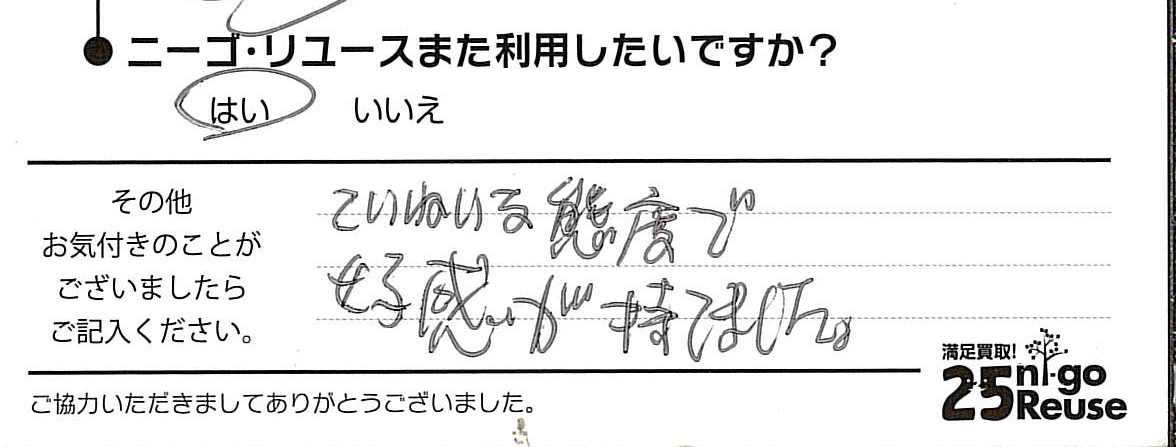 ニーゴ・リユースまた利用したいですか？
はい いいえ
その他
お気付きのことが
ございましたら
ご記入ください。
ていねいな態度で
好感が持てました。
満足買取!
25 ni-go
Reuse
ご協力いただきましてありがとうございました。